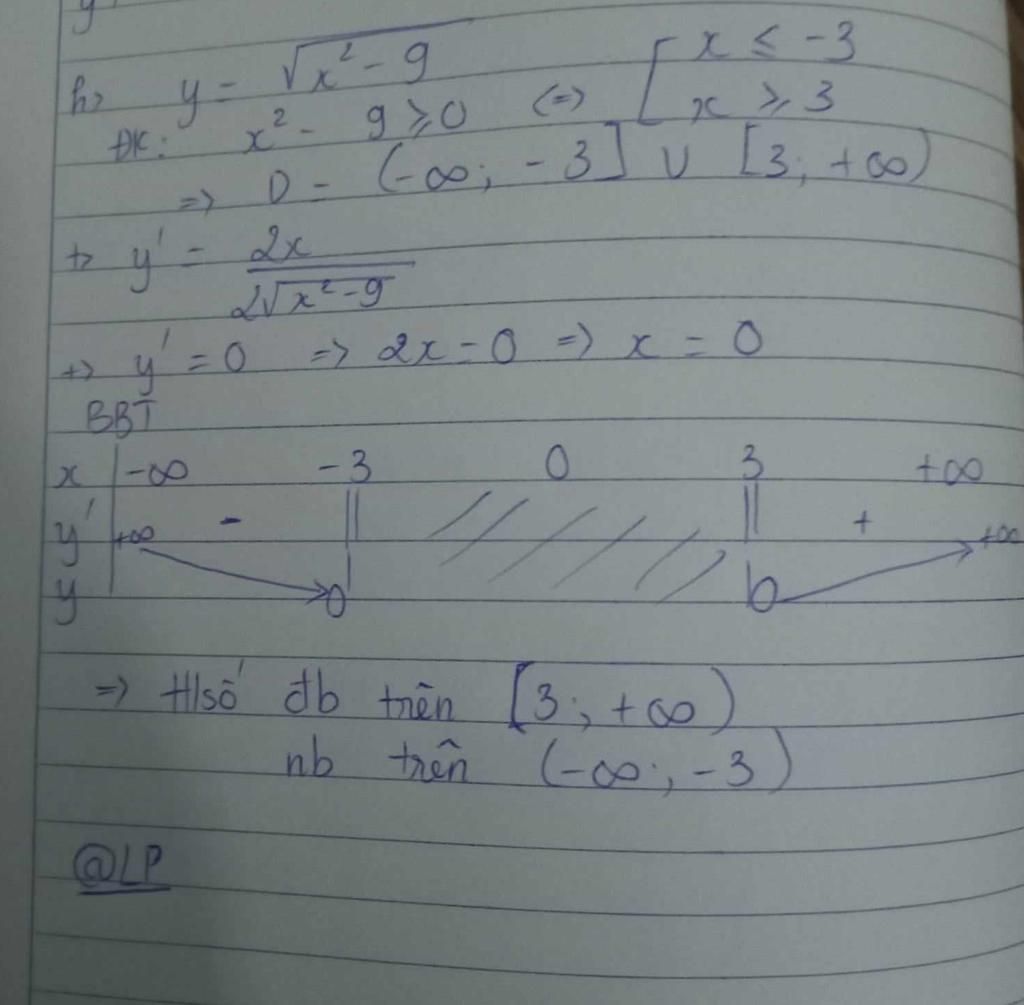 h> y = √(x² - 9)
ĐK: x² - 9 ≥ 0 <=> [ x ≤ -3
x ≥ 3
=> D = (-∞; -3] ∪ [3; +∞)
+> y' = 2x / 2√(x² - 9)
+> y' = 0 => 2x = 0 => x = 0
BBT
x | -∞ -3 0 3 +∞
y' - || || +
y +∞ 0 0 +∞
=> Hsố đb trên [3; +∞)
nb trên (-∞; -3)
@LP